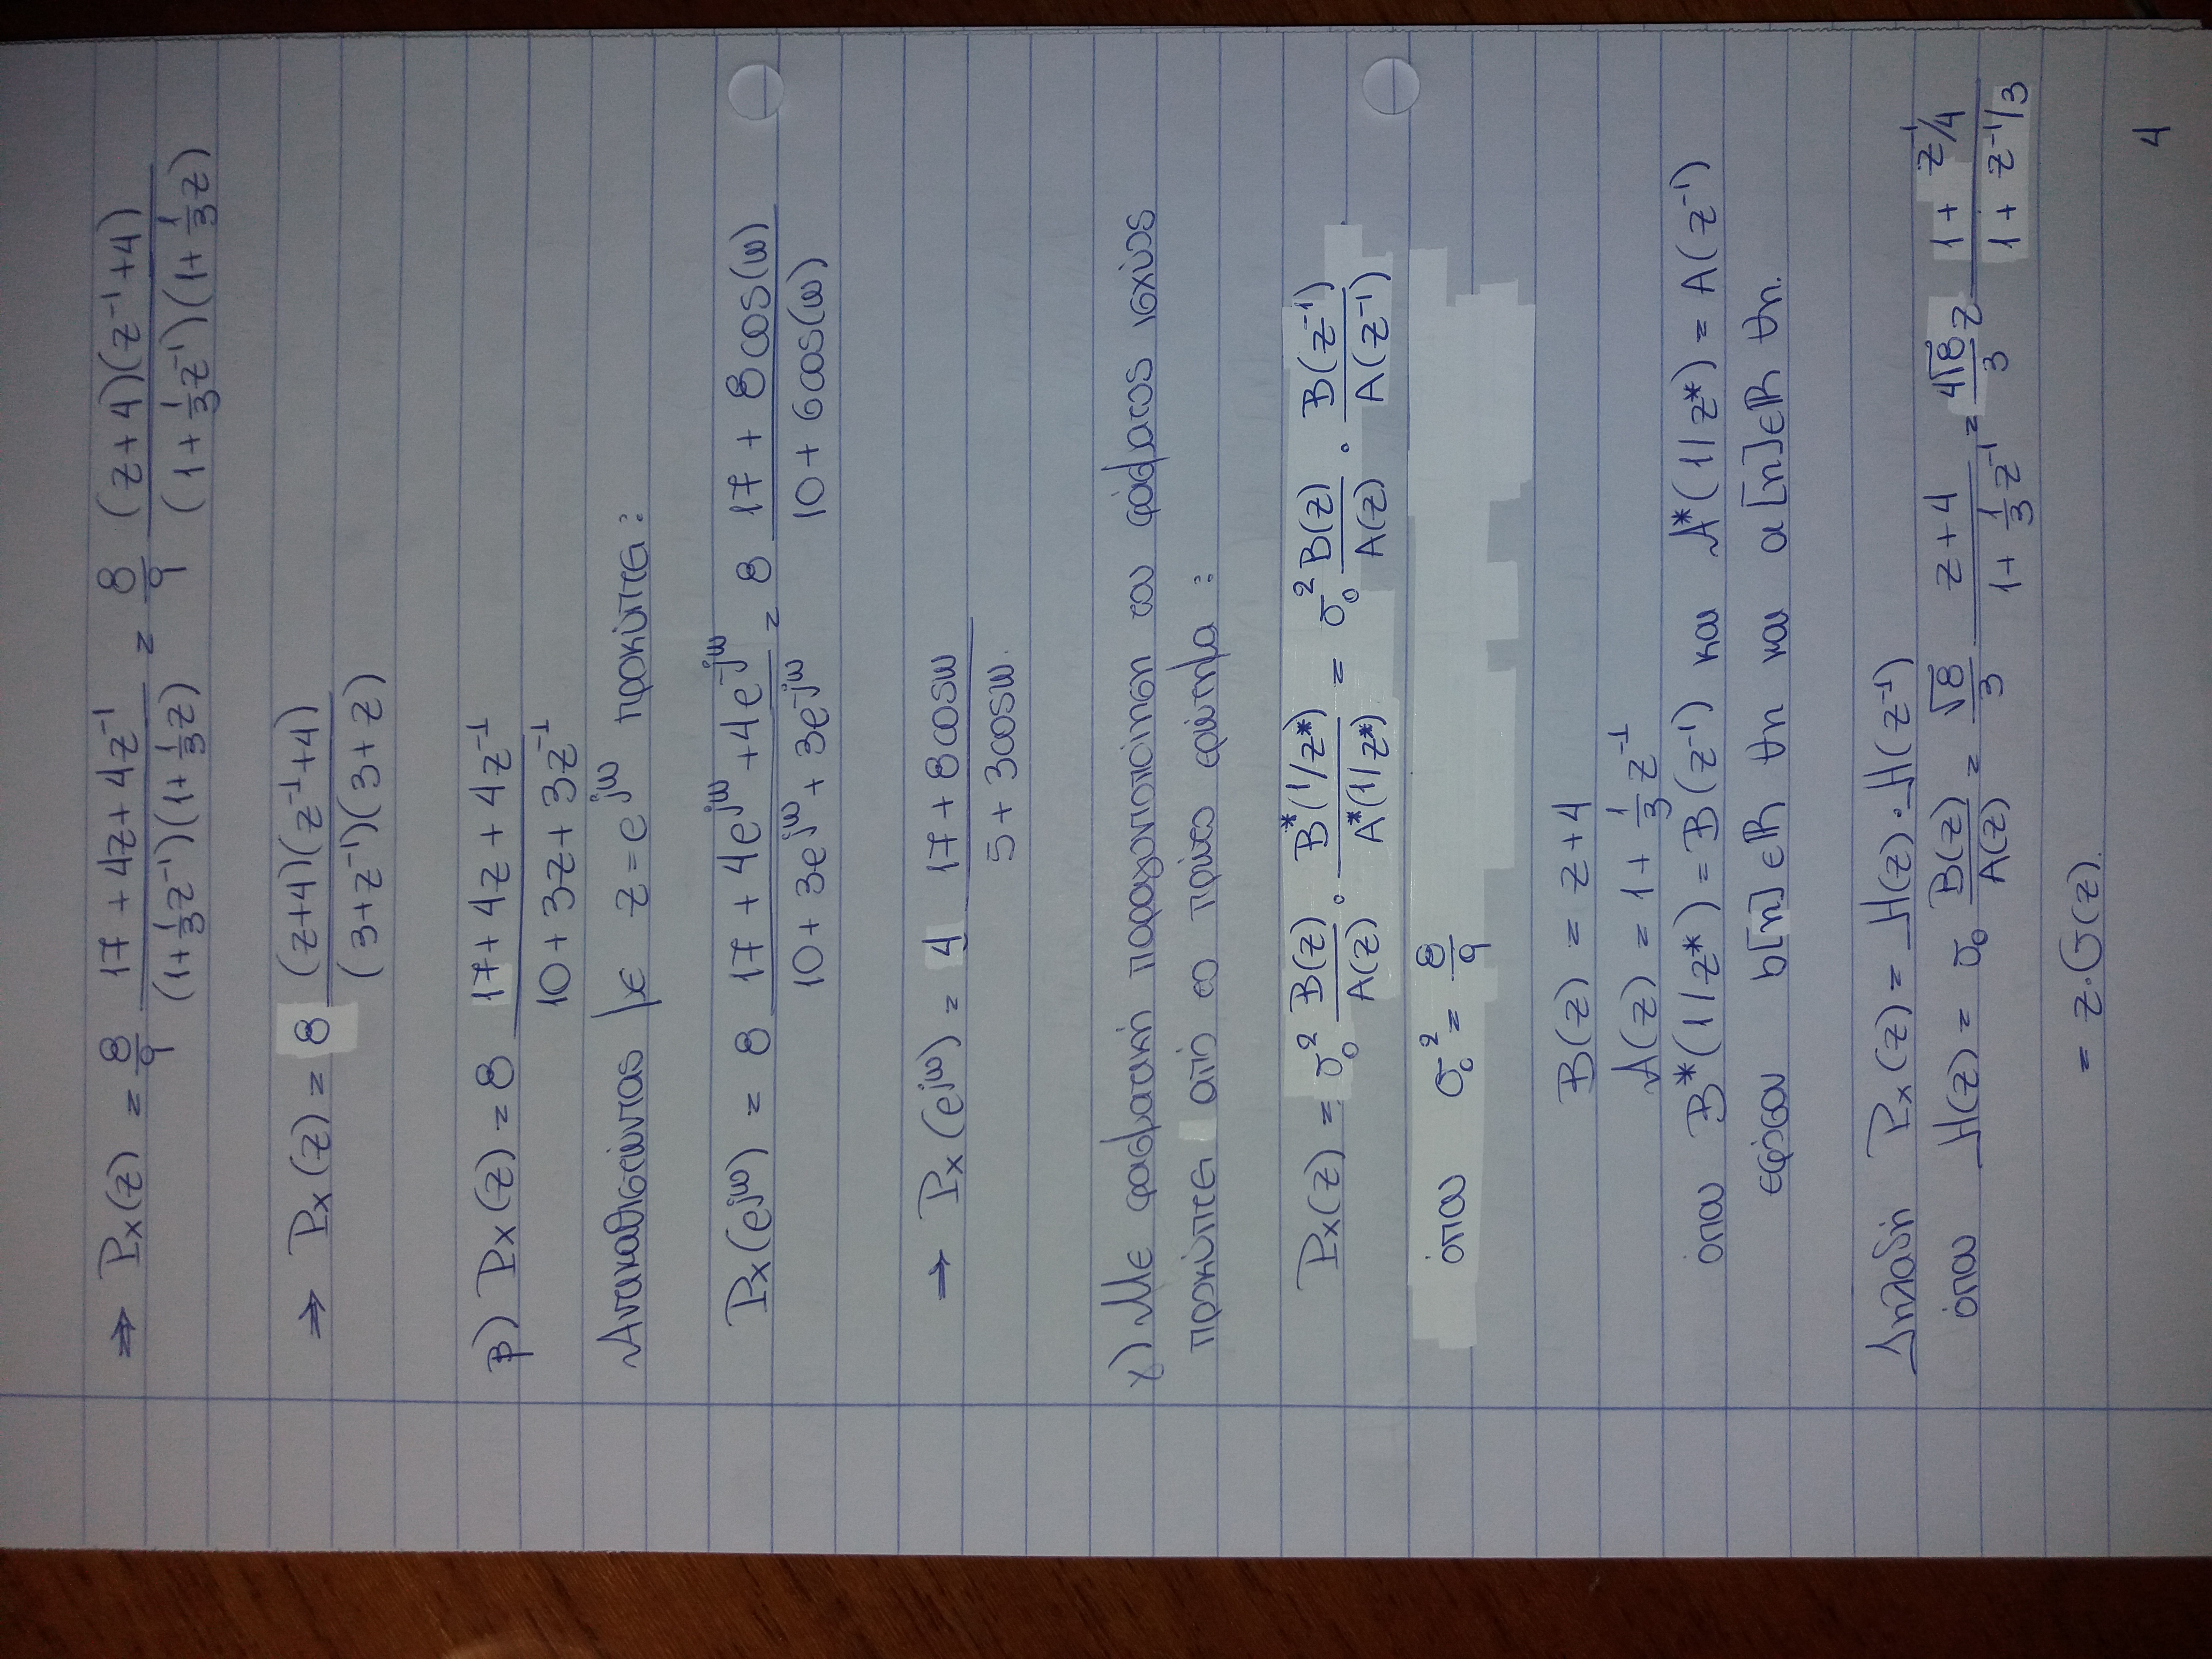 ⇒ Px(z) = 8/9 (17 + 4z + 4z⁻¹)/((1+⅓z⁻¹)(1+⅓z)) = 8/9 ((z+4)(z⁻¹+4))/((1+⅓z⁻¹)(1+⅓z))
⇒ Px(z) = 8 ((z+4)(z⁻¹+4))/((3+z⁻¹)(3+z))
β) Px(z) = 8 (17 + 4z + 4z⁻¹)/(10 + 3z + 3z⁻¹)
Αντικαθιστώντας με z = e^{jω} προκύπτει:
Px(e^{jω}) = 8 (17 + 4e^{jω} + 4e^{-jω})/(10 + 3e^{jω} + 3e^{-jω}) = 8 (17 + 8cos(ω))/(10 + 6cos(ω))
→ Px(e^{jω}) = 4 (17 + 8cosω)/(5 + 3cosω).
γ) Με φασματική παραγοντοποίηση του φάσματος ισχύος
προκύπτει από το πρώτο ερώτημα :
Px(z) = σ₀² B(z)/A(z) · B*(1/z*)/A*(1/z*) = σ₀² B(z)/A(z) · B(z⁻¹)/A(z⁻¹)
όπου σ₀² = 8/9
B(z) = z+4
A(z) = 1 + ⅓z⁻¹
όπου B*(1/z*) = B(z⁻¹) και A*(1/z*) = A(z⁻¹)
εφόσον b[n]∈ℝ ∀n και a[n]∈ℝ ∀n.
Δηλαδή Px(z) = H(z)·H(z⁻¹)
όπου H(z) = σ₀ B(z)/A(z) = √8/3 (z+4)/(1+⅓z⁻¹) = 4√8/3 z (1 + z⁻¹/4)/(1 + z⁻¹/3)
= z·G(z).
4